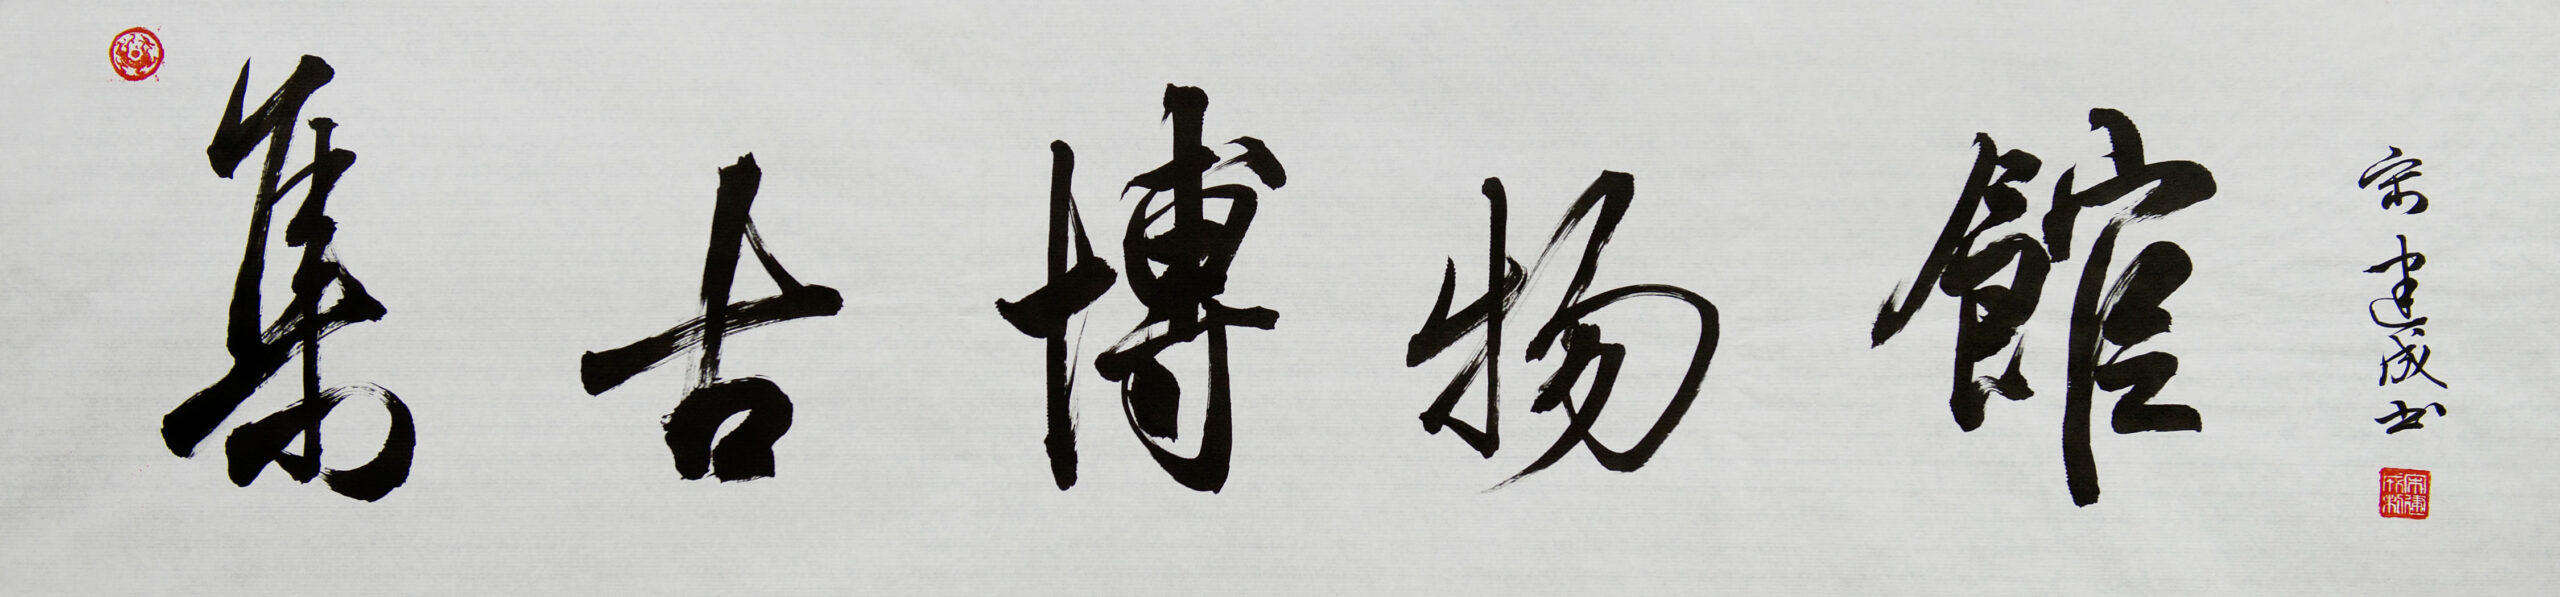 集古博物館
宋建成书